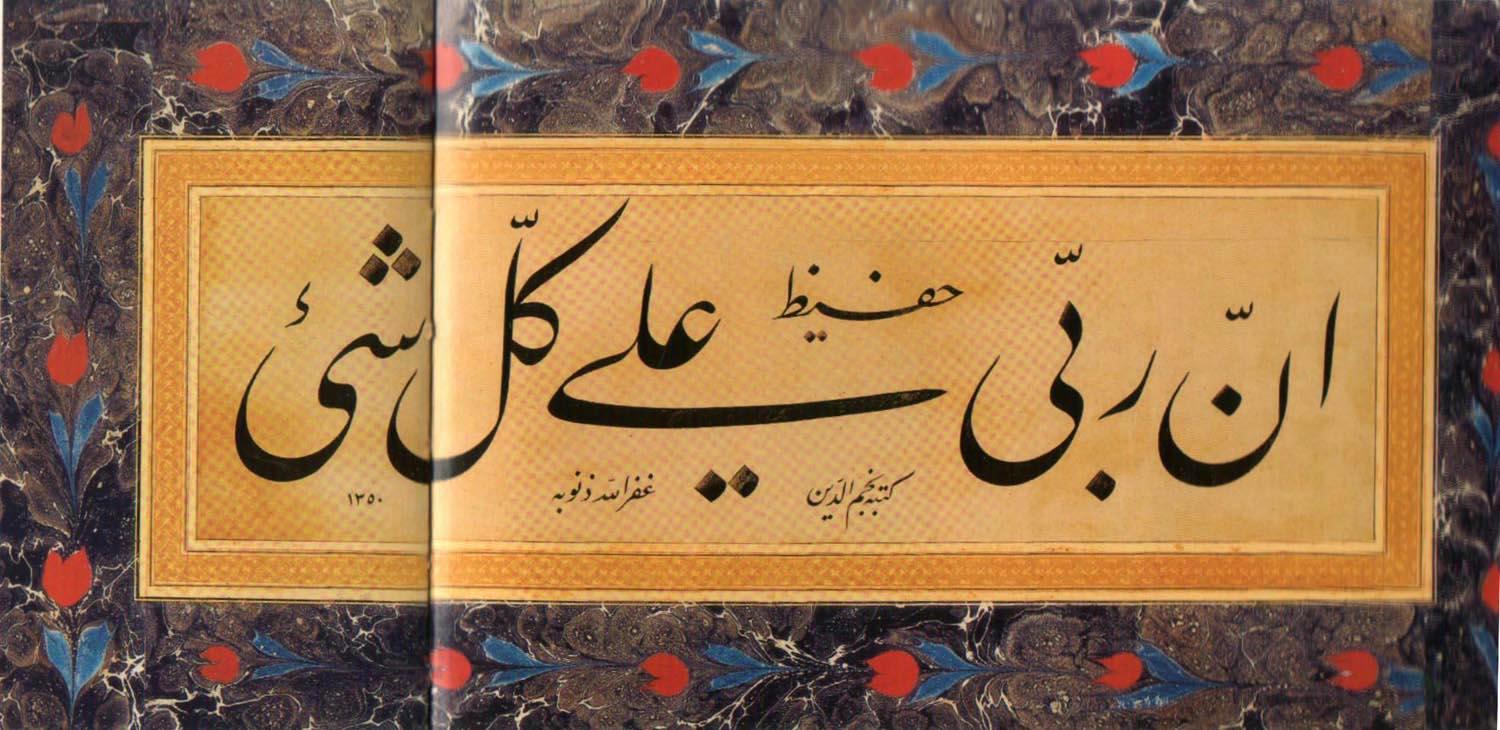 انّ ربّى على كلّ شئ حفيظ
كتبه نجم الدّين غفر اللّه ذنوبه
١٣٥٠